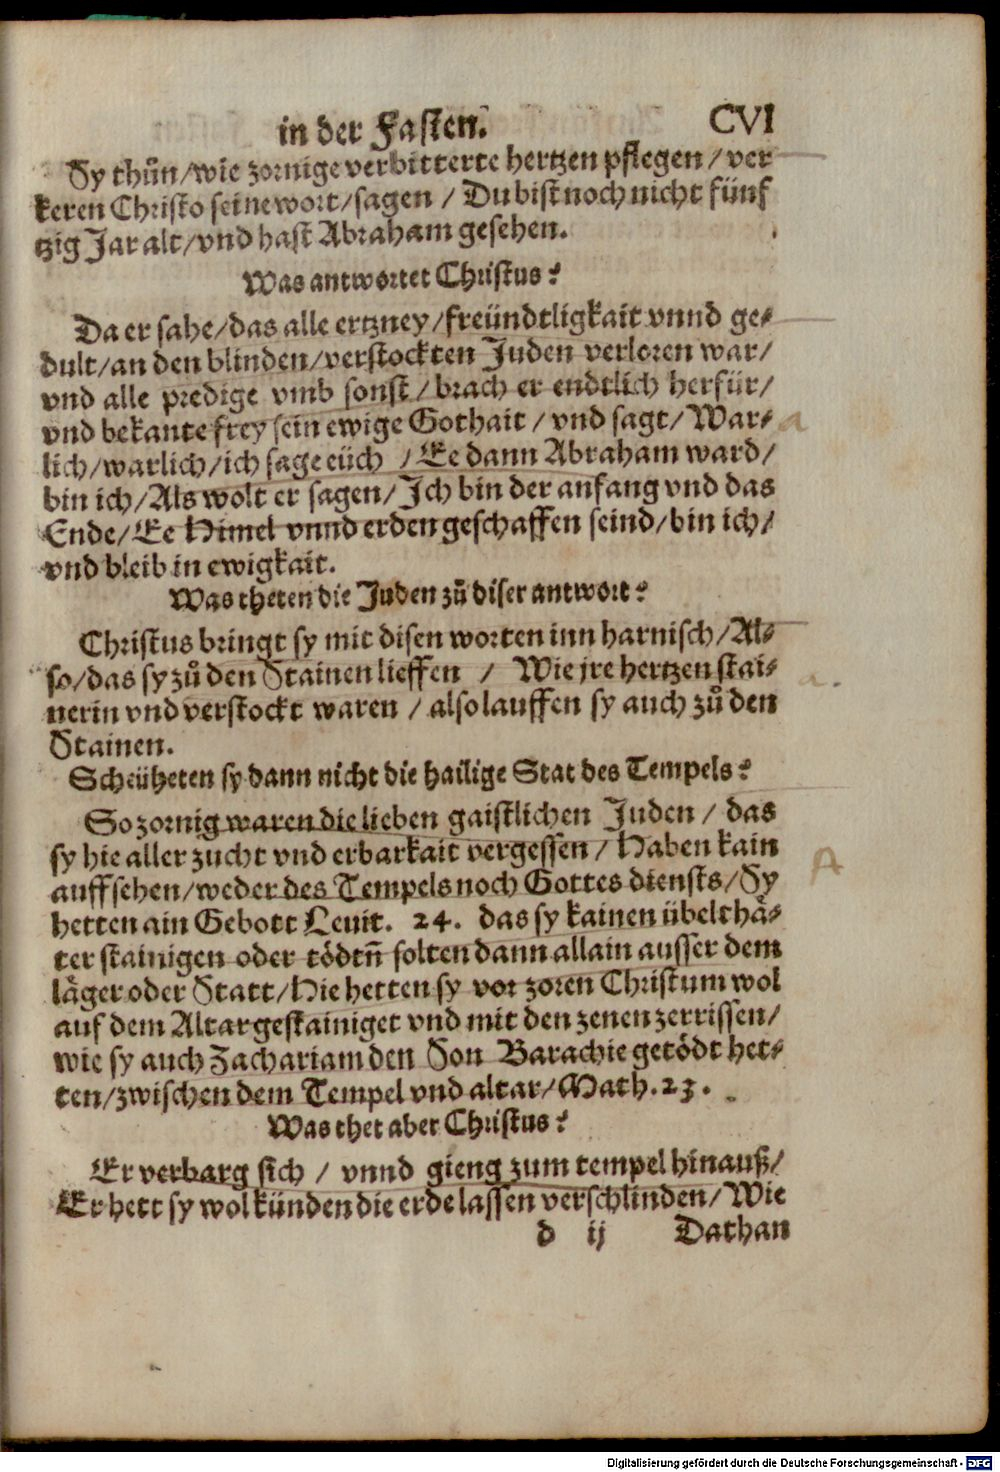 in der Fasten. CVI
Sy thůn/wie zornige verbitterte hertzen pflegen/ver
keren Christo seine wort/sagen / Du bist noch nicht fünf
tzig Jar alt/vnd hast Abraham gesehen.
Was antwortet Christus?
Da er sahe/das alle ertzney/freündtligkait vnnd ge-
dult/an den blinden/verstockten Juden verloren war/
vnd alle predige vmb sonst/brach er endtlich herfür/
vnd bekante frey sein ewige Gothait / vnd sagt/ War-
lich/warlich/ich sage eüch /Ee dann Abraham ward/
bin ich/Als wolt er sagen/Ich bin der anfang vnd das
Ende/Ee Himel vnnd erden geschaffen seind/bin ich/
vnd bleib in ewigkait.
Was theten die Juden zů diser antwort?
Christus bringt sy mit disen worten inn harnisch/Al-
so/das sy zů den Stainen lieffen / Wie jre hertzen stai-
nerin vnd verstockt waren / also lauffen sy auch zů den
Stainen.
Scheüheten sy dann nicht die hailige Stat des Tempels?
So zornig waren die lieben gaistlichen Juden / das
sy hie aller zucht vnd erbarkait vergessen/Haben kain
auffsehen/weder des Tempels noch Gottes diensts/Sy
hetten ain Gebott Leuit. 24. das sy kainen übelthä-
ter stainigen oder tödtn̄ solten dann allain ausser dem
läger oder Statt/Hie hetten sy vor zoren Christum wol
auf dem Altar gestainiget vnd mit den zenen zerrissen/
wie sy auch Zachariam den Son Barachie getödt het-
ten/zwischen dem Tempel vnd altar/Math.23.
Was thet aber Christus?
Er verbarg sich / vnnd gieng zum tempel hinauß/
Er hett sy wol künden die erde lassen verschlinden/Wie
d ij Dathan
a
a.
A
Digitalisierung gefördert durch die Deutsche Forschungsgemeinschaft - DFG